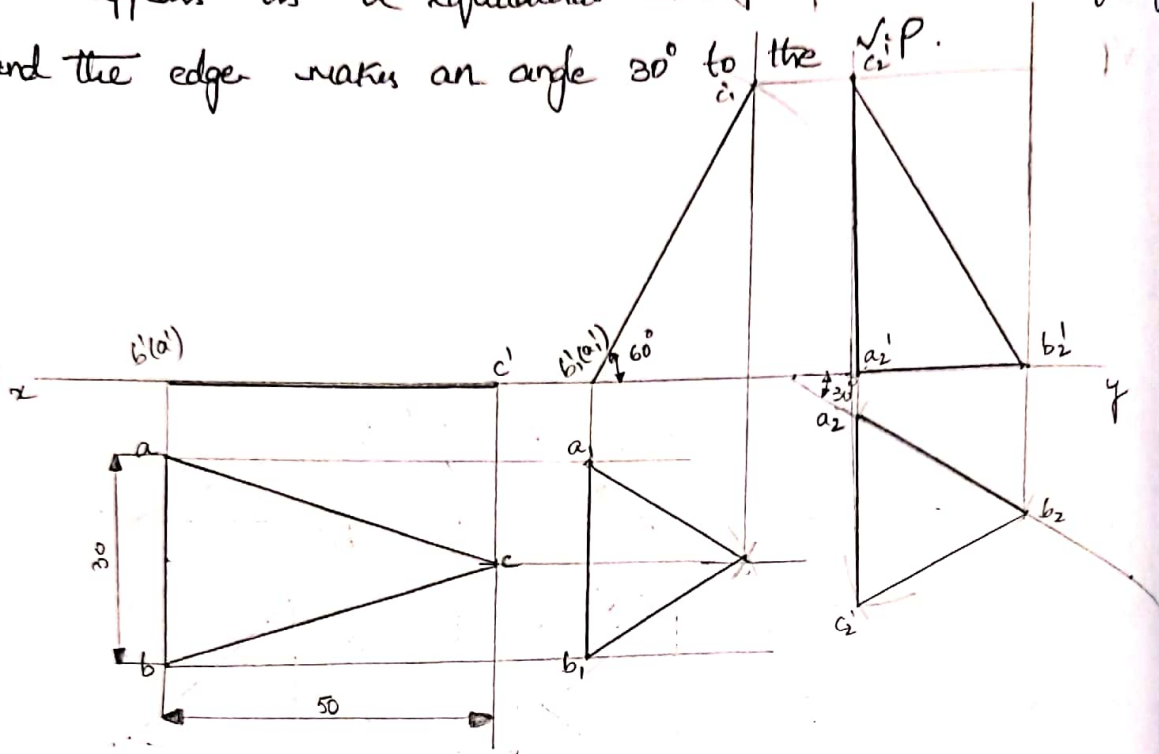 as a
and the edge makes an angle 30° to the V.P.
c₁' c₂'
b'(a') c' b₁'(a₁') 60° a₂' b₂'
x y
30°
a a₁ a₂
30 c b₂
b b₁ c₂'
50